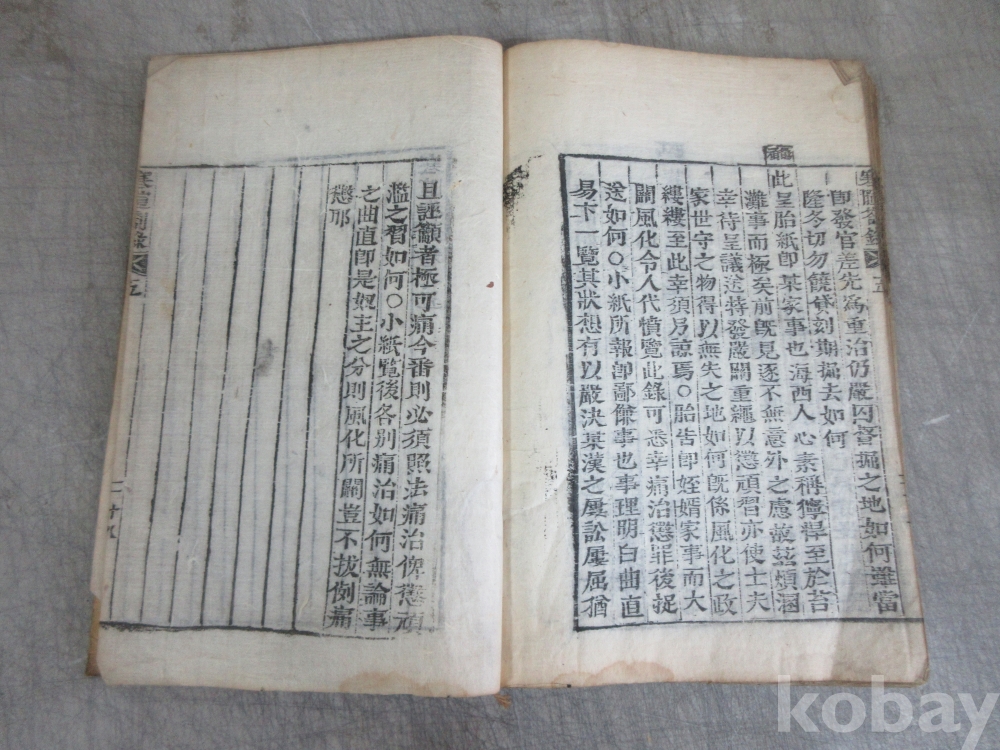 卽發官差先爲重治仍嚴囚督掘之地如何雖當
隆冬切勿饒貸刻期掘去如何
此呈胎紙卽某家事也海西人心素稱獰悍至於苔
灘事而極矣前旣見逐不無意外之慮故玆煩溷
幸待呈議送特發嚴關重繩以懲頑習亦使士夫
家世守之物得以無失之地如何旣係風化之政
縷縷至此幸須乃諒焉○胎告卽姪婿家事而大
關風化令人代憤覽此錄可悉幸痛治懲罪後捉
送如何○小紙所報卽鄙傔事也事理明白曲直
易卞一覽其狀想有以嚴決某漢之屢訟屢屈猶
且誣籲者極可痛今番則必須照法痛治俾懲頑
濫之習如何○小紙覽後各別痛治如何無論事
之曲直卽是奴主之分則風化所關豈不拔例痛
懲耶
寒暄箚錄 五
二十八
kobay